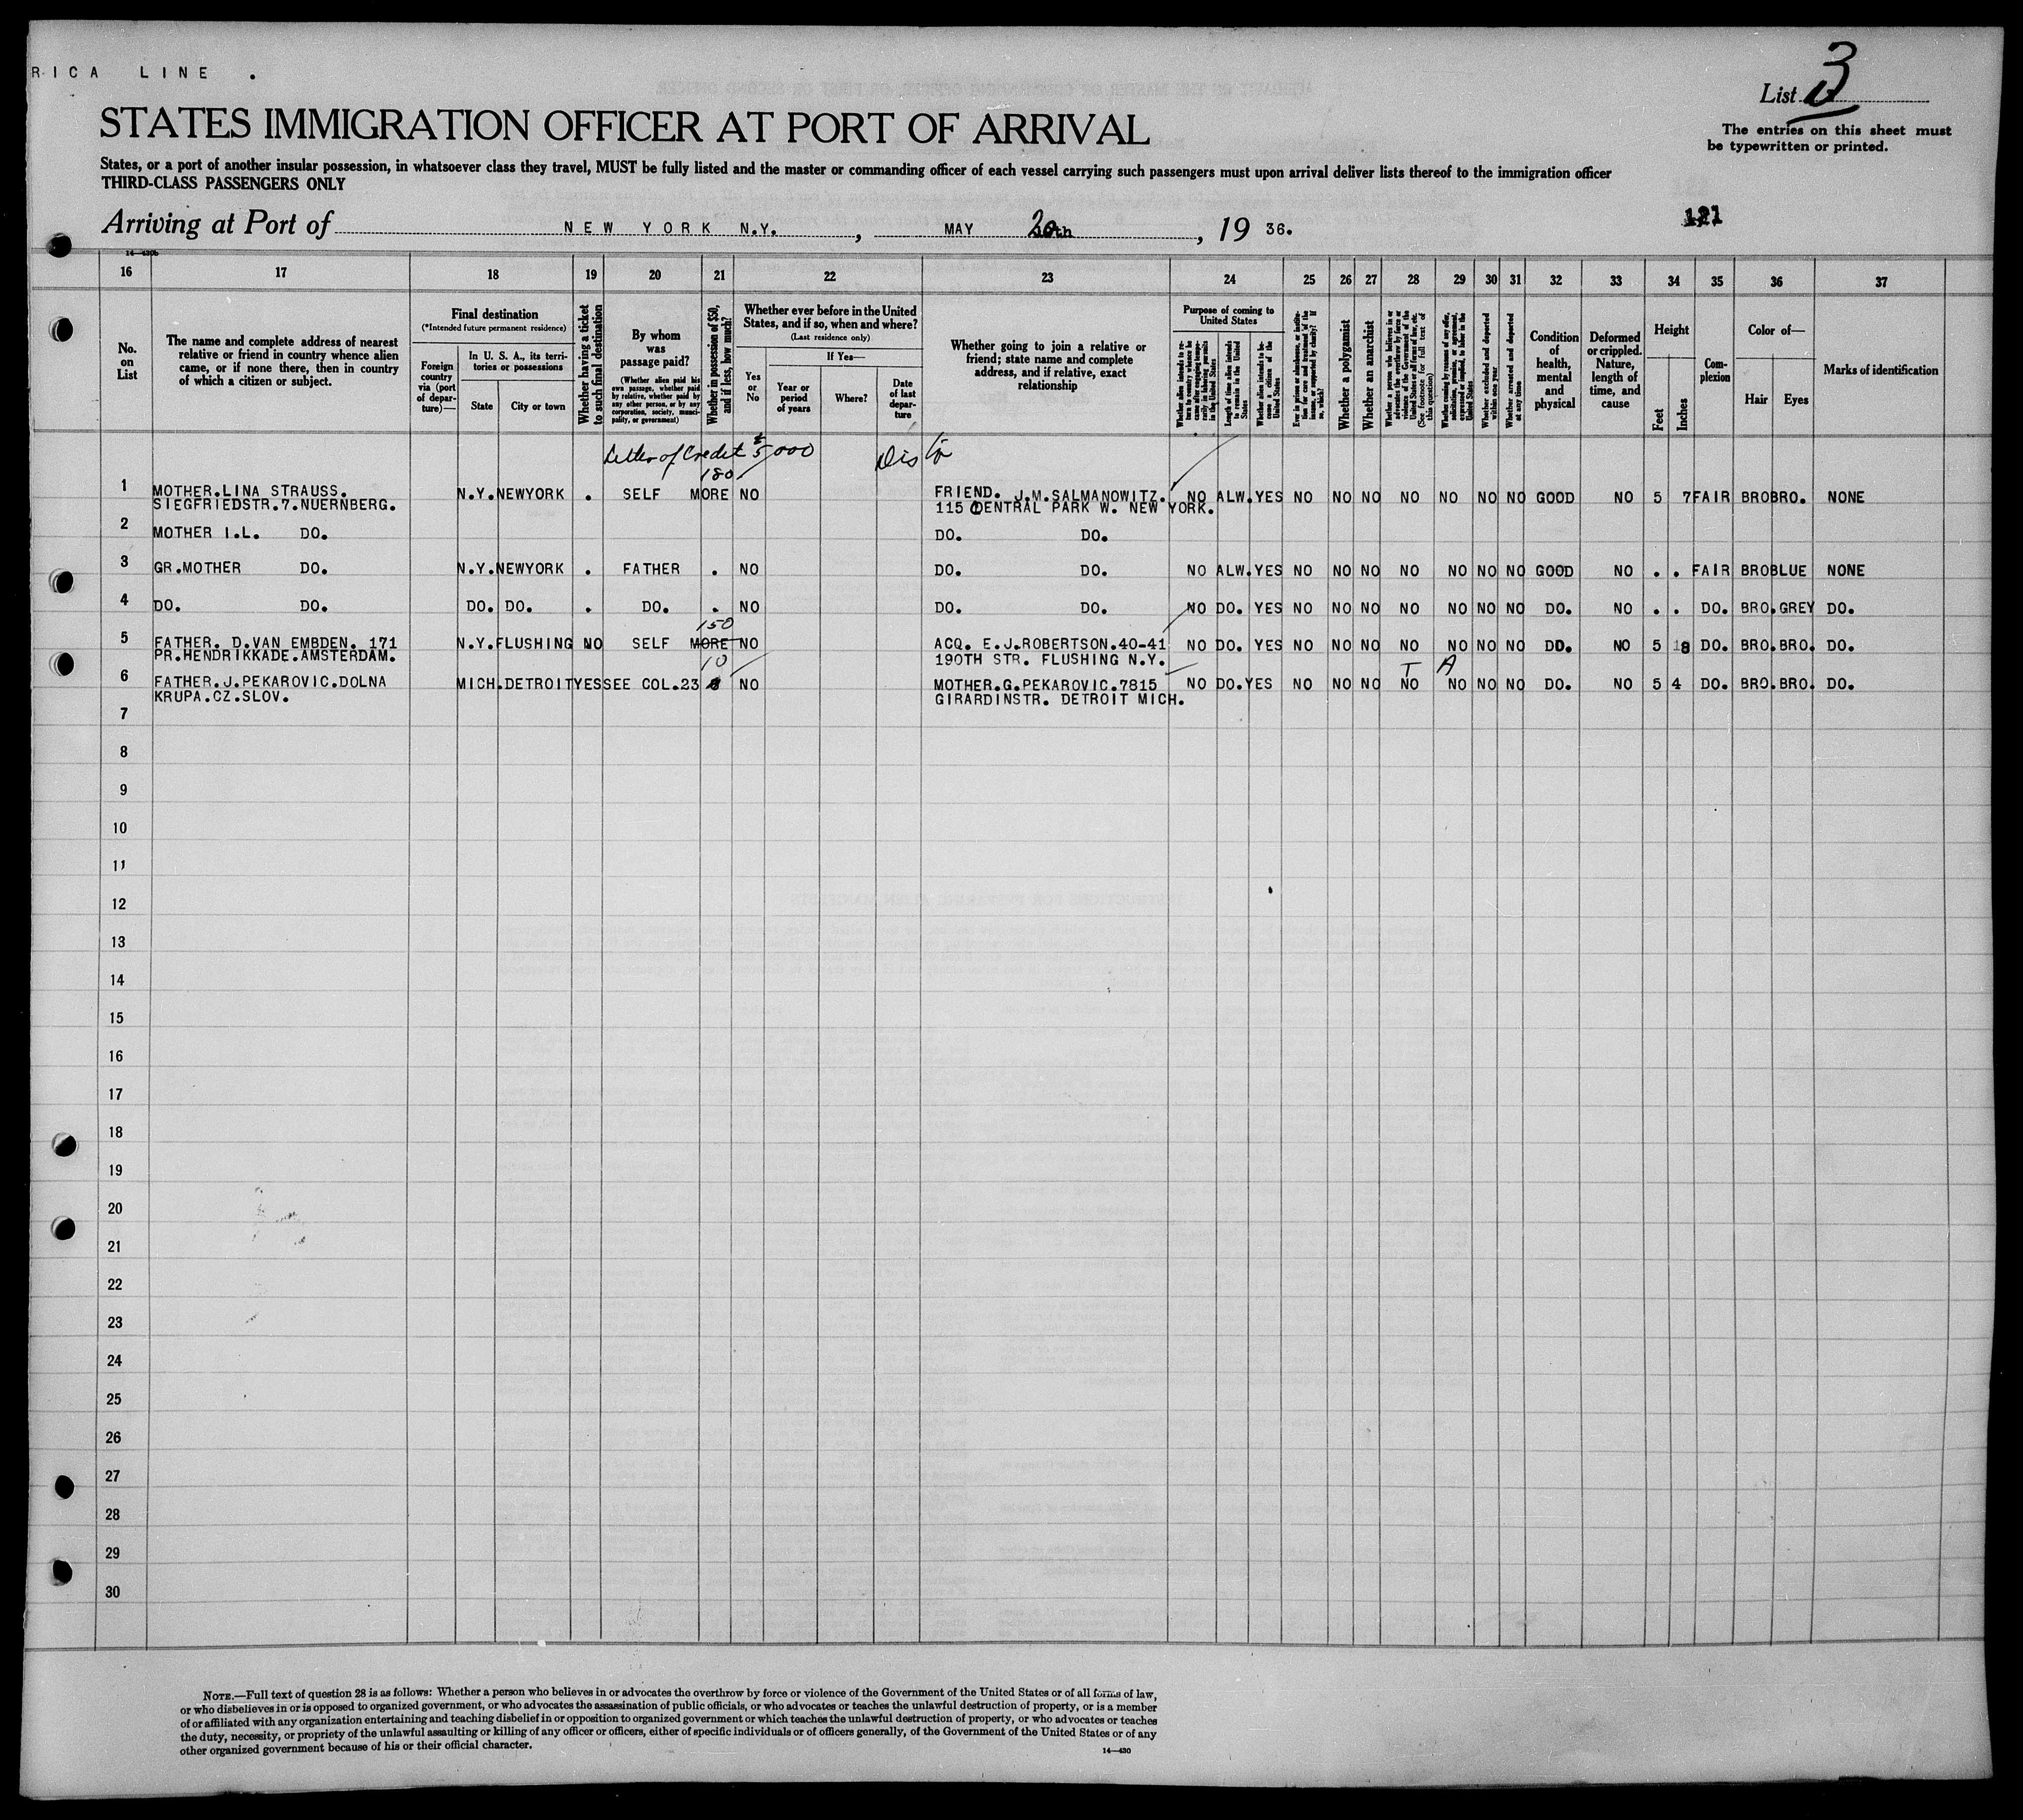 RICA LINE .
List 3
STATES IMMIGRATION OFFICER AT PORT OF ARRIVAL
The entries on this sheet must
be typewritten or printed.
States, or a port of another insular possession, in whatsoever class they travel, MUST be fully listed and the master or commanding officer of each vessel carrying such passengers must upon arrival deliver lists thereof to the immigration officer
THIRD-CLASS PASSENGERS ONLY
121
Arriving at Port of NEW YORK N.Y., MAY 20th, 19 36.
14—430b
16 17 18 19 20 21 22 23 24 25 26 27 28 29 30 31 32 33 34 35 36 37
No. on List
The name and complete address of nearest
relative or friend in country whence alien
came, or if none there, then in country
of which a citizen or subject.
Final destination
(*Intended future permanent residence)
Foreign country via (port of departure)—
In U. S. A., its territories or possessions
State City or town
Whether having a ticket to such final destination
By whom was passage paid?
(Whether alien paid his own passage, whether paid by relative, whether paid by any other person, or by any corporation, society, municipality, or government)
Whether in possession of $50, and if less, how much?
Whether ever before in the United
States, and if so, when and where?
(Last residence only)
Yes or No
If Yes—
Year or period of years Where? Date of last departure
Whether going to join a relative or
friend; state name and complete
address, and if relative, exact
relationship
Purpose of coming to United States
Whether alien intends to return to country whence he came after engaging temporarily in laboring pursuits in the United States
Length of time alien intends to remain in the United States
Whether alien intends to become a citizen of the United States
Ever in prison or almshouse, or institution for care and treatment of the insane, or supported by charity? If so, which?
Whether a polygamist
Whether an anarchist
Whether a person who believes in or advocates the overthrow by force or violence of the Government of the United States or all forms of law, etc. (See footnote for full text of this question)
Whether coming by reason of any offer, solicitation, promise, or agreement, expressed or implied, to labor in the United States
Whether excluded and deported within one year
Whether arrested and deported at any time
Condition of health, mental and physical
Deformed or crippled. Nature, length of time, and cause
Height
Feet Inches
Complexion
Color of—
Hair Eyes
Marks of identification
Letter of Credit 5,000
180
1 MOTHER.LINA STRAUSS. N.Y. NEWYORK . SELF MORE NO FRIEND. J.M.SALMANOWITZ. NO ALW. YES NO NO NO NO NO NO NO GOOD NO 5 7 FAIR BRO BRO. NONE
SIEGFRIEDSTR.7.NUERNBERG. 115 CENTRAL PARK W. NEW YORK.
2 MOTHER I.L. DO. DO. DO.
3 GR.MOTHER DO. N.Y. NEWYORK . FATHER . NO DO. DO. NO ALW. YES NO NO NO NO NO NO NO GOOD NO . . FAIR BRO BLUE NONE
4 DO. DO. DO. DO. . DO. . NO DO. DO. NO DO. YES NO NO NO NO NO NO NO DO. NO . . DO. BRO. GREY DO.
150
5 FATHER. D.VAN EMBDEN. 171 N.Y. FLUSHING NO SELF MORE NO ACQ. E.J.ROBERTSON.40-41 NO DO. YES NO NO NO NO NO NO NO DO. NO 5 8 DO. BRO. BRO. DO.
PR.HENDRIKKADE.AMSTERDAM. 190TH STR. FLUSHING N.Y.
10 T A
6 FATHER.J.PEKAROVIC.DOLNA MICH. DETROIT YES SEE COL.23 8 NO MOTHER.G.PEKAROVIC.7815 NO DO. YES NO NO NO NO NO NO NO DO. NO 5 4 DO. BRO. BRO. DO.
KRUPA.CZ.SLOV. GIRARDINSTR. DETROIT MICH.
7
8
9
10
11
12
13
14
15
16
17
18
19
20
21
22
23
24
25
26
27
28
29
30
NOTE.—Full text of question 28 is as follows: Whether a person who believes in or advocates the overthrow by force or violence of the Government of the United States or of all forms of law,
or who disbelieves in or is opposed to organized government, or who advocates the assassination of public officials, or who advocates or teaches the unlawful destruction of property, or is a member
of or affiliated with any organization entertaining and teaching disbelief in or opposition to organized government or which teaches the unlawful destruction of property, or who advocates or teaches
the duty, necessity, or propriety of the unlawful assaulting or killing of any officer or officers, either of specific individuals or of officers generally, of the Government of the United States or of any
other organized government because of his or their official character.
14—430